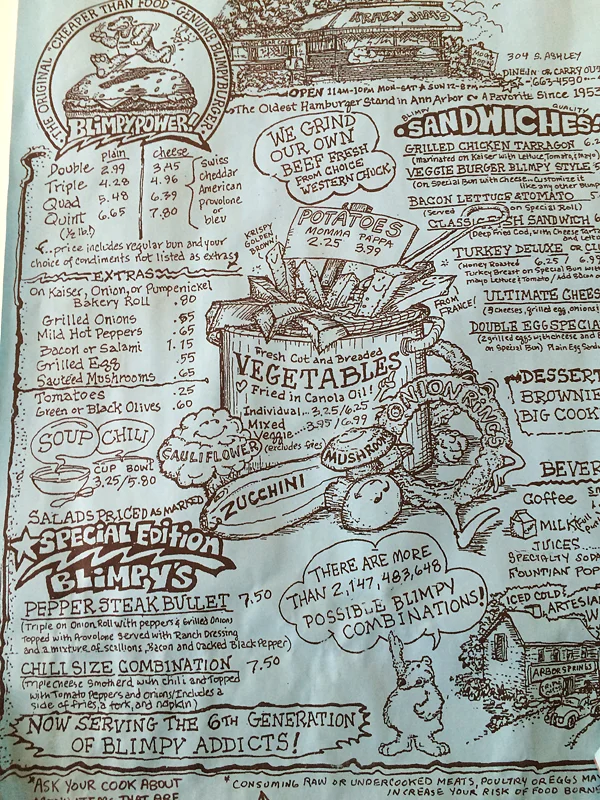 THE ORIGINAL "CHEAPER THAN FOOD" GENUINE BLIMPYBURGER
BLIMPYPOWER!
KRAZY JIM'S
304 S. ASHLEY
DINE IN OR CARRY OUT
663-4590
OPEN 11AM-10PM MON-SAT & SUN 12-8PM
The Oldest Hamburger Stand in Ann Arbor
A Favorite Since 1953
plain cheese
Double 2.99 3.45
Triple 4.28 4.96
Quad 5.48 6.39
Quint 6.65 7.80
(½ lb!)
Swiss
cheddar
American
provolone
or
bleu
price includes regular bun and your
choice of condiments not listed as extras
EXTRAS
On Kaiser, Onion, or Pumpernickel
Bakery Roll .80
Grilled Onions .85
Mild Hot Peppers .65
Bacon or Salami 1.15
Grilled Egg .55
Sautéed Mushrooms .65
Tomatoes .25
Green or Black Olives .60
SOUP CHILI
CUP BOWL
3.25/5.80
SALADS PRICED AS MARKED
SPECIAL EDITION
BLIMPY'S
PEPPER STEAK BULLET 7.50
(Triple on Onion Roll with peppers & Grilled Onions
Topped with Provolone Served with Ranch Dressing
and a mixture of scallions, Bacon and Cracked Black Pepper)
CHILI SIZE COMBINATION 7.50
(Triple Cheese Smotherd with Chili and Topped
with Tomato Peppers and Onions/Includes a
side of fries, a fork, and napkin)
NOW SERVING THE 6TH GENERATION
OF BLIMPY ADDICTS!
WE GRIND
OUR OWN
BEEF FRESH
FROM CHOICE
WESTERN CHUCK
POTATOES
MOMMA PAPPA
2.25 3.99
KRISPY
GOLDEN
BROWN
FROM
FRANCE!
Fresh Cut and Breaded
VEGETABLES
Fried in Canola Oil!
Individual... 3.25/6.25
Mixed
Veggie... 3.95/6.99
(excludes fries)
ONION RINGS
CAULIFLOWER
MUSHROOM
ZUCCHINI
THERE ARE MORE
THAN 2,147,483,648
POSSIBLE BLIMPY
COMBINATIONS!
BLIMPY QUALITY
SANDWICHES
GRILLED CHICKEN TARRAGON 6.2
(Marinated on Kaiser with Lettuce, Tomato, (Mayo)
VEGGIE BURGER BLIMPY STYLE 5
(On Special Bun with Cheese... Customize it
like any other Blimp
BACON LETTUCE & TOMATO
(Served on Special Roll)
SANDWICH 6
(Deep Fried Cod, with Cheese Tarta
and Lett
TURKEY DELUXE OR CL
(Honey Roasted 6.25 / 6.9
Turkey Breast on Special Bun with
mayo Lettuce & Tomato / Add Bacon
ULTIMATE CHEES
(3 Cheeses, grilled egg, onions
DOUBLE EGG SPECIA
(2 grilled eggs with cheese and B
on Special Bun) Plain Egg Sand
DESSERT
BROWNIE
BIG COOK
BEVER
Coffee
MILK
JUICES
SPECIALTY SODA
FOUNTIAN POP
ICED COLD!
ARTESIAN
ARBOR SPRINGS
*ASK YOUR COOK ABOUT
MENU ITEMS THAT ARE
*CONSUMING RAW OR UNDERCOOKED MEATS, POULTRY OR EGGS MAY
INCREASE YOUR RISK OF FOOD BORNE